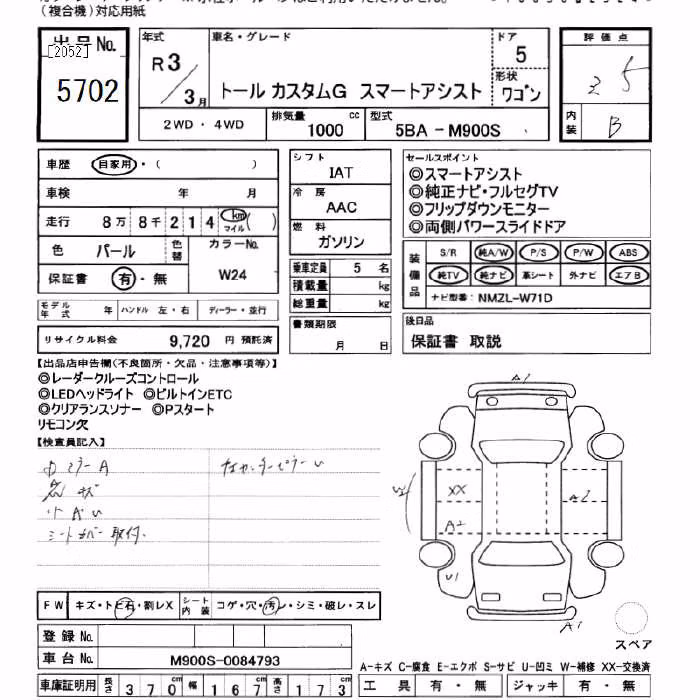 （複合機）対応用紙
出品No.
[2052]
5702
年式
R3
3月
車名・グレード
トール カスタムG スマートアシスト
ドア
5
形状
ワゴン
評価点
3.5
内装
B
2WD・4WD
排気量
1000 cc
型式
5BA-M900S
車歴 自家用・（ ）
車検 年 月
走行 8万 8千 2 1 4 km マイル ( )
色 パール 色替 カラーNo.
W24
保証書 有・無
シフト
IAT
冷房
AAC
燃料
ガソリン
乗車定員 5 名
積載量 kg
総重量 kg
セールスポイント
◎スマートアシスト
◎純正ナビ・フルセグTV
◎フリップダウンモニター
◎両側パワースライドドア
装備品
S/R 純A/W P/S P/W ABS
純TV 純ナビ 革シート 外ナビ エアB
ナビ型番：NMZL-W71D
モデル年式 年 ハンドル 左・右 ディーラー・並行
書類期限
月 日
後日品
保証書 取説
リサイクル料金 9,720 円 預託済
【出品店申告欄(不良箇所・欠品・注意事項等)】
◎レーダークルーズコントロール
◎LEDヘッドライト ◎ビルトインETC
◎クリアランスソナー ◎Pスタート
リモコン欠
【検査員記入】
シートカバー取付
A1
XX
A2
A2
U1
A1
スペア
FW キズ・トビ石・割レX シート内装 コゲ・穴・汚レ・シミ・破レ・スレ
登録No.
車台No. M900S-0084793
A-キズ C-腐食 E-エクボ S-サビ U-凹ミ W-補修 XX-交換済
車庫証明用 長さ 370cm 幅 167cm 高さ 173cm
工具 有・無 ジャッキ 有・無